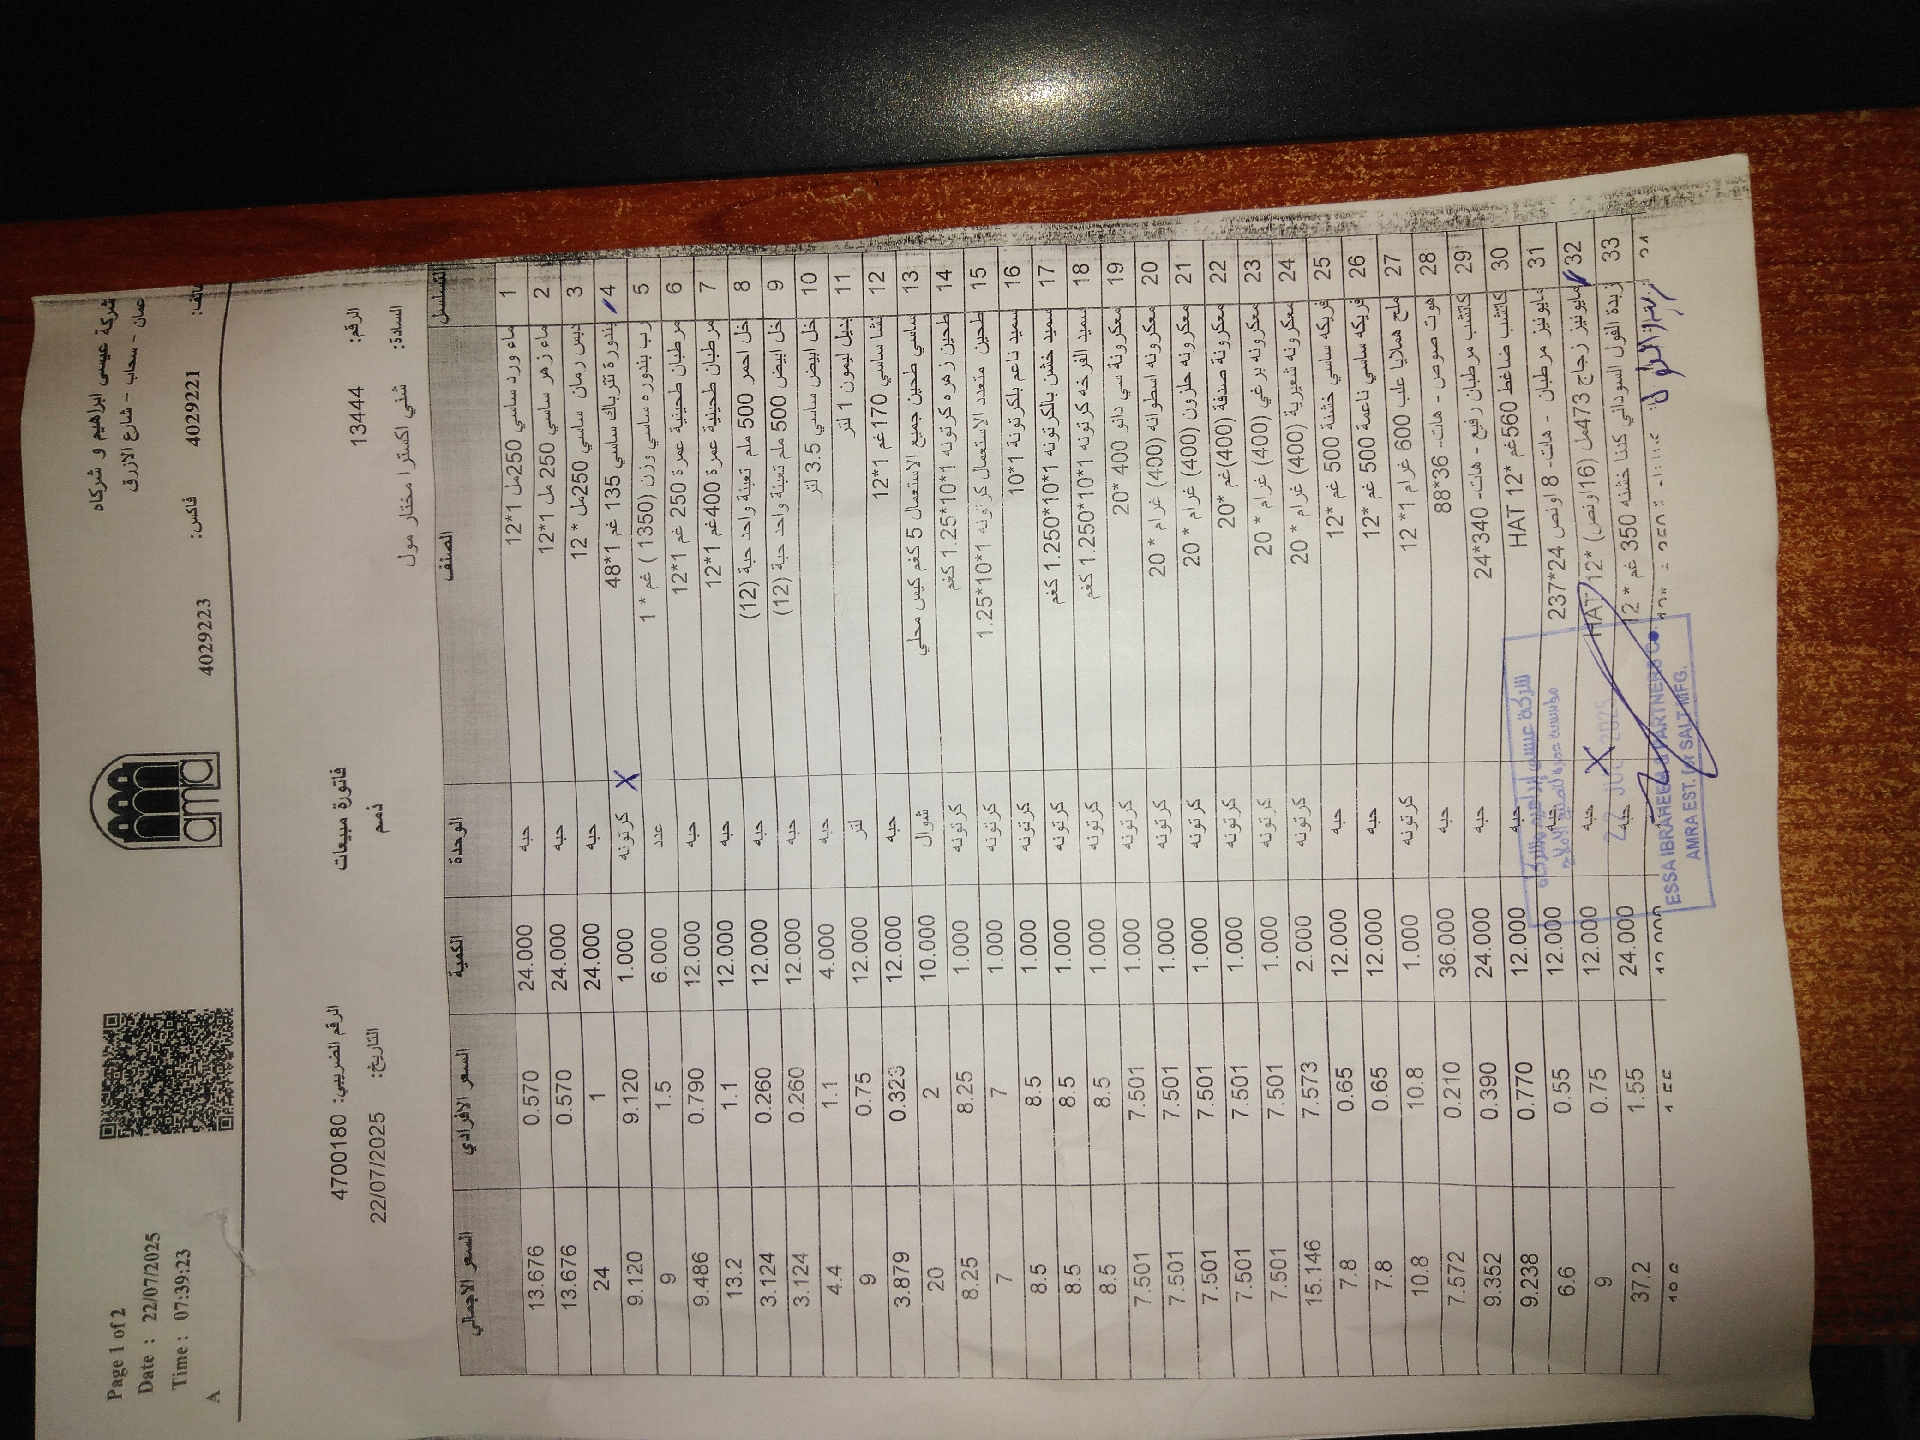 Page 1 of 2
Date : 22/07/2025
Time : 07:39:23
A
amra
شركة عيسى ابراهيم و شركاه
عمان - سحاب - شارع الازرق
4029221 فاكس: 4029223
فاتورة مبيعات
ذمم
الرقم الضريبي: 4700180
التاريخ: 22/07/2025
الرقم: 13444
السادة: شلي اكسترا مختار مول
التسلسل الصنف الوحدة الكمية السعر الافرادي السعر الاجمالي
1 ماء ورد ساسي 250مل 1*12 حبه 24.000 0.570 13.676
2 ماء زهر ساسي 250 مل 1*12 حبه 24.000 0.570 13.676
3 دبس رمان ساسي 250مل * 12 حبه 24.000 1 24
4 بندورة تتراباك ساسي 135 غم 1*48 كرتونه X 1.000 9.120 9.120
5 رب بندوره ساسي وزن (1350 ) غم * 1 عدد 6.000 1.5 9
6 مرطبان طحينية عمرة 250 غم 1*12 حبه 12.000 0.790 9.486
7 مرطبان طحينية عمرة 400غم 1*12 حبه 12.000 1.1 13.2
8 خل احمر 500 ملم تعبئة واحد حبة (12) حبه 12.000 0.260 3.124
9 خل ابيض 500 ملم تعبئة واحد حبة (12) حبه 12.000 0.260 3.124
10 خل ابيض ساسي 3.5 لتر حبه 4.000 1.1 4.4
11 بديل ليمون 1 لتر لتر 12.000 0.75 9
12 نشا ساسي 170غم 1*12 حبه 12.000 0.323 3.879
13 ساسي طحين جميع الاستعمال 5 كغم كيس محلي شوال 10.000 2 20
14 طحين زهره كرتونه 1*10*1.25 كغم كرتونه 1.000 8.25 8.25
15 طحين متعدد الاستعمال كرتونه 1*10*1.25 كرتونه 1.000 7 7
16 سميد ناعم بلكرتونة 1*10 كرتونه 1.000 8.5 8.5
17 سميد خشن بالكرتونه 1*10*1.250 كغم كرتونه 1.000 8.5 8.5
18 سميد الفرخه كرتونه 1*10*1.250 كغم كرتونه 1.000 8.5 8.5
19 معكرونة سي دانو 400 *20 كرتونه 1.000 7.501 7.501
20 معكرونه اسطوانه (400) غرام * 20 كرتونه 1.000 7.501 7.501
21 معكرونه حلزون (400) غرام * 20 كرتونه 1.000 7.501 7.501
22 معكرونة صدفة (400)غم *20 كرتونه 1.000 7.501 7.501
23 معكرونه برغي (400) غرام * 20 كرتونه 1.000 7.501 7.501
24 معكرونه شعيرية (400) غرام * 20 كرتونه 2.000 7.573 15.146
25 فريكه ساسي خشنة 500 غم *12 حبه 12.000 0.65 7.8
26 فريكه ساسي ناعمة 500 غم *12 حبه 12.000 0.65 7.8
27 ملح هملايا علب 600 غرام 1* 12 كرتونه 1.000 10.8 10.8
28 هوت صوص - هات- 36*88 حبه 36.000 0.210 7.572
29 كاتشب مرطبان رفيع - هات- 340*24 حبه 24.000 0.390 9.352
30 كاتشب ضاغط 560غم *12 HAT حبه 12.000 0.770 9.238
31 مايونيز مرطبان - هات- 8 اونص 24*237 حبه 12.000 0.55 6.6
32 مايونيز زجاج 473مل (16اونص) *12 HAT حبه X 12.000 0.75 9
33 زبدة الفول السوداني كتنا خشنه 350 غم * 12 حبه 24.000 1.55 37.2
شركة عيسى إبراهيم وشركاه
مؤسسة عمرة لتصنيع الاملاح
22 JUL 2025
ESSA IBRAHEEM & PARTNERS Co.
AMRA EST. for SALT MFG.